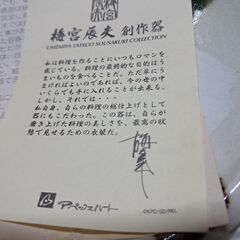 梅宮辰夫 創作器
UMEMIYA TATSUO SOUSAKUKI COLLECTION
私は料理を作ることにいつもロマンを
感じている。料理の最終的な目的はう
まいものを食べることだ。ただ単にう
まければよいのであれば、今の世の中
いくらでも手に入れることが出来る。
しかし、それでは…
私自身、自らの料理の総仕上げとして
器にもこだわった。この器は、自らが
磨き上げた料理の美しさを、最高の状
態で見せるための衣装だ。
アペックスハート